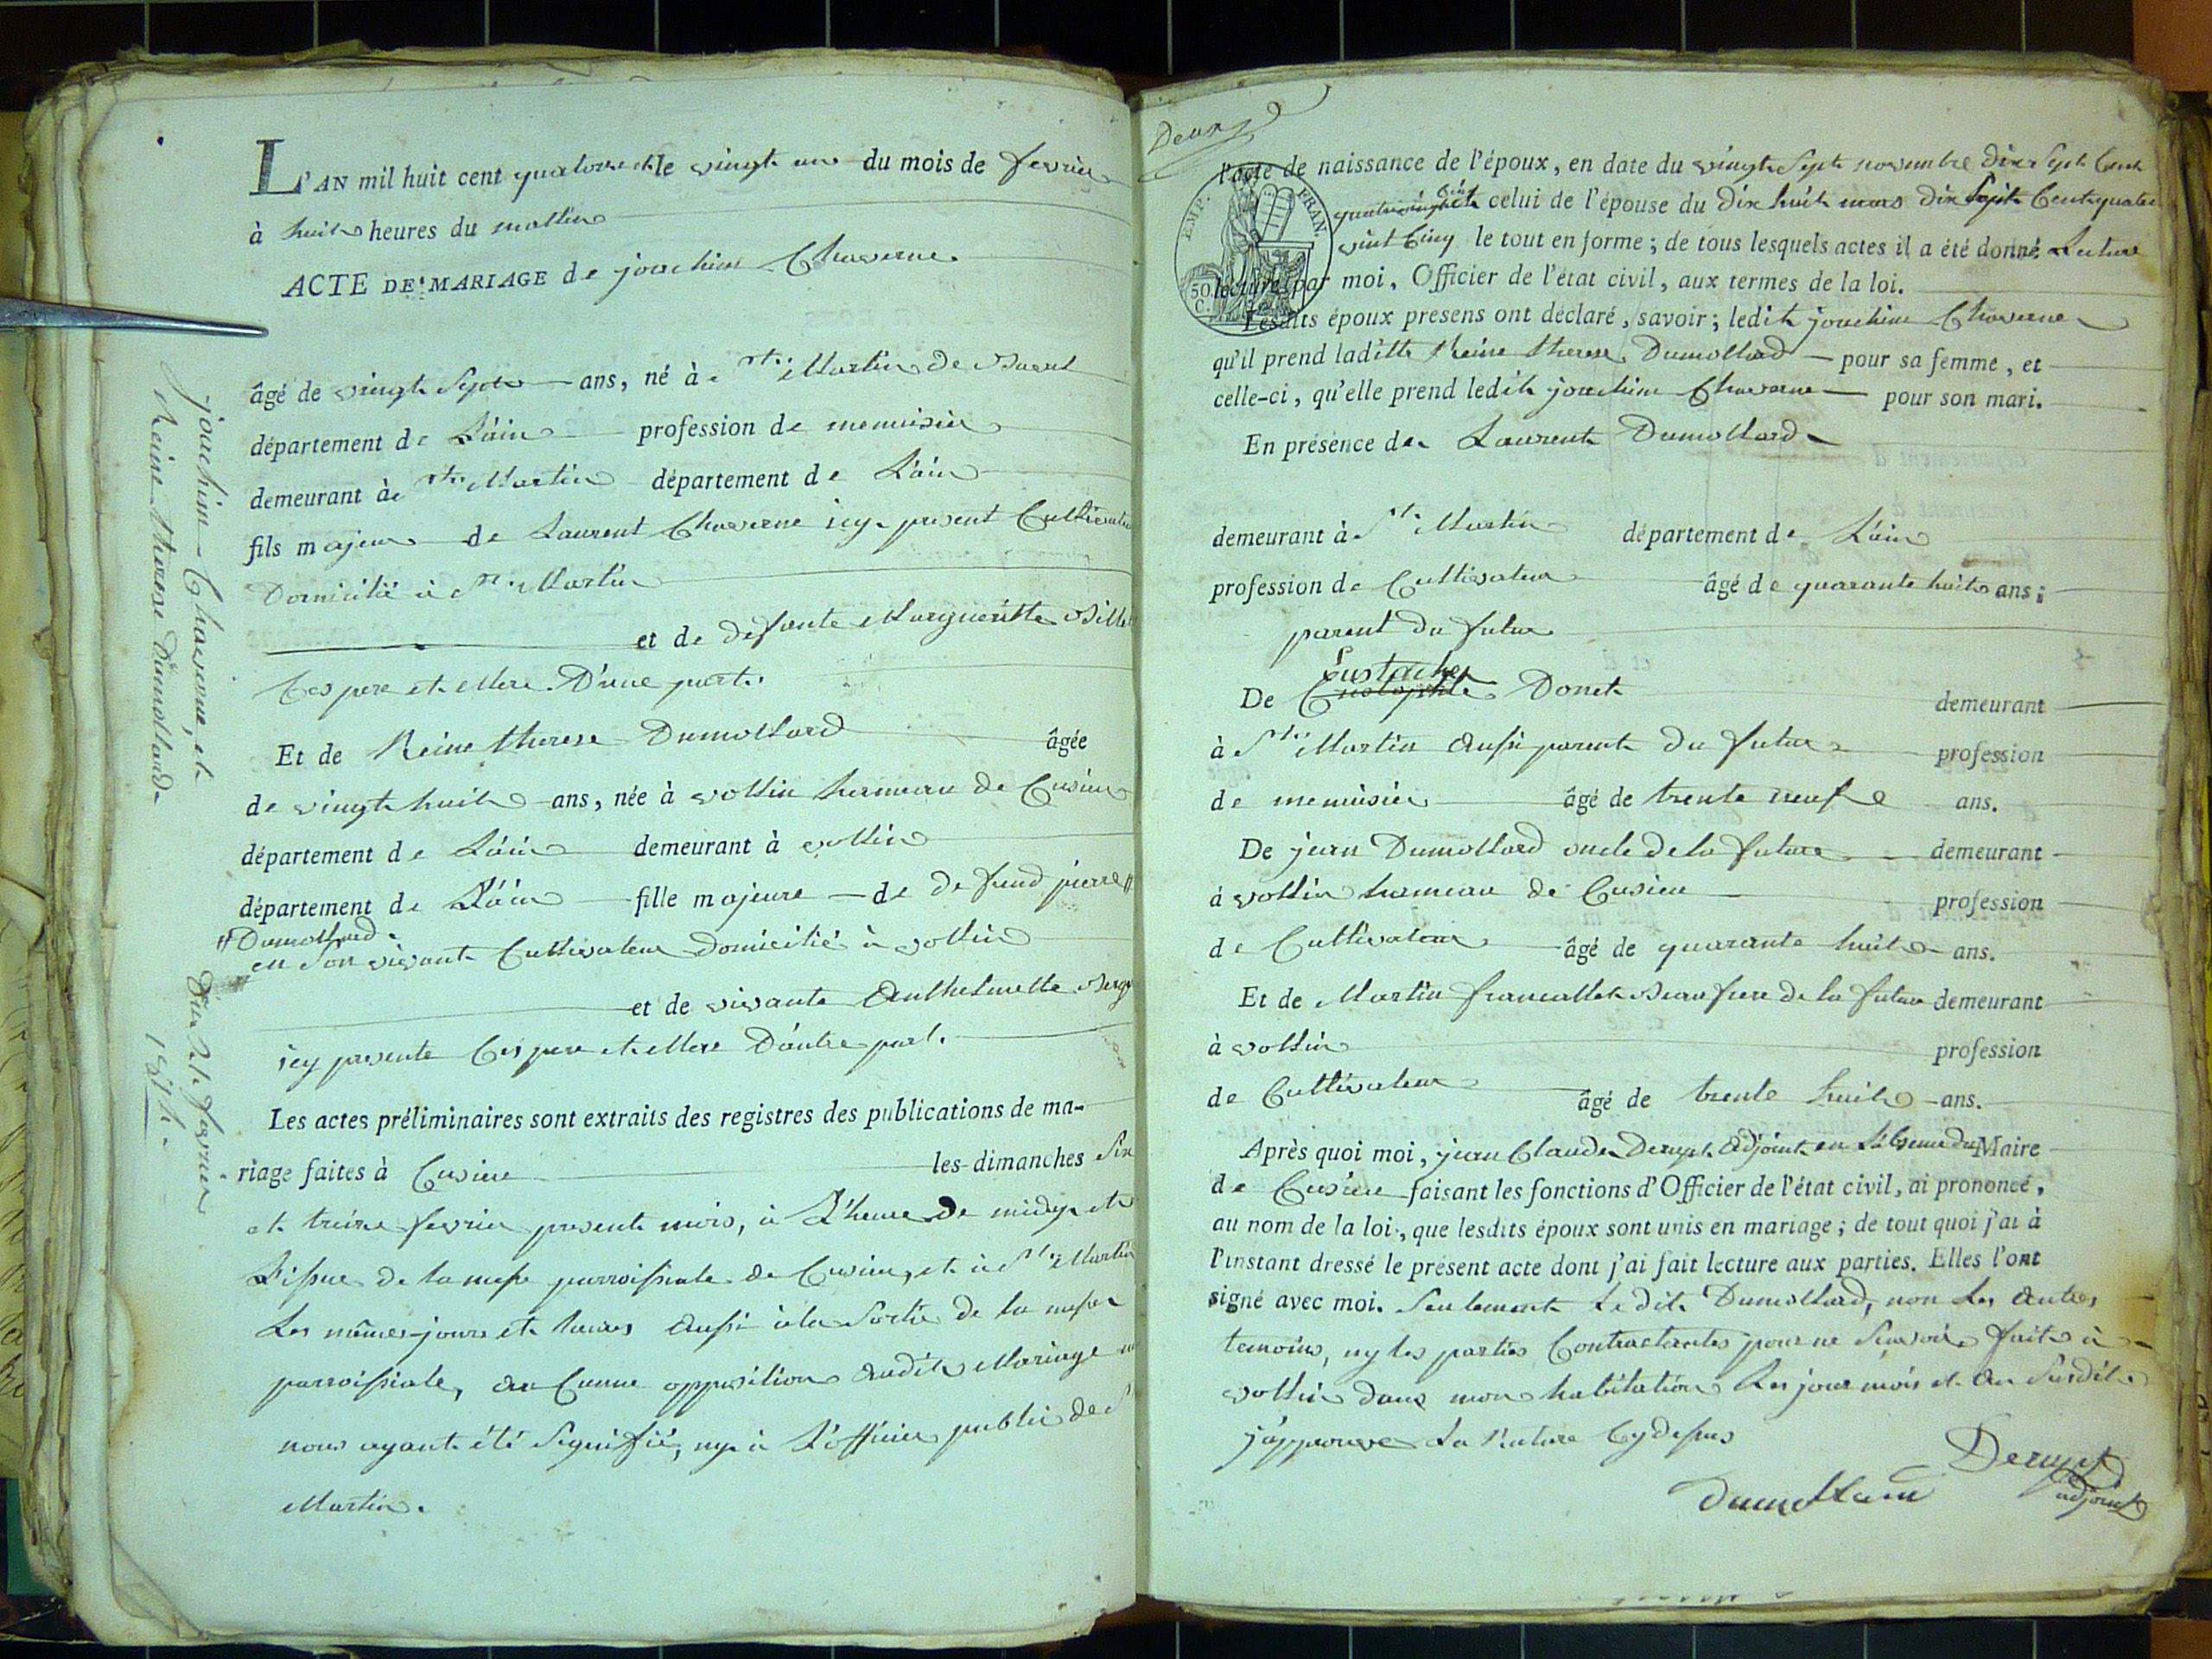 L'AN mil huit cent quatorze et le vingt un du mois de fevrier
à huit heures du mattin
ACTE DE MARIAGE de joachim Chaverne.
âgé de vingt Sept ans, né à St. Martin de Bavel
département de L'ain profession de menuisier
demeurant à St. Martin département de L'ain
fils majeur de Laurent Chaverne icy present Cultivateur
Domicilié à St. Martin
et de defunte Margueritte Billet
Ces pere et Mere. D'une part.
Et de Reine therese Dumollard âgée
de vingt huit ans, née à vollin hameau de Cusieu
département de L'ain demeurant à vollin
département de L'ain fille majeure de defund pierre #
# Dumollard.
en Son vivant Cultivateur Domicilié à vollin
et de vivante Anthelmette
icy presente Ces pere et Mere D'autre part.
Les actes préliminaires sont extraits des registres des publications de ma-
riage faites à Cusieu les dimanches Six
et treize fevrier present mois, à L'heure de midy et
L'issue de la messe parroissiale de Cusieu, et à St. Martin
Les mêmes jours et heures aussi à la Sortie de la messe
parroissiale, au Cunne opposition audit Mariage
nous ayant été Signifié, ny à L'officier public de St
Martin.
joachim Chaverne, et
Reine therese Dumollard.
Du 21 fevrier
1814.
Deux
l'acte de naissance de l'époux, en date du vingt Sept novembre dix Sept Cent
quatre vingt Six celui de l'épouse du Dix huit mars Dix Sept Cent quatre
vint Cinq le tout en forme; de tous lesquels actes il a été donné Lecture
lecture par moi, Officier de l'état civil, aux termes de la loi.
EMP. FRAN.
50 C.
Lesdits époux présens ont déclaré, savoir; ledit joachim Chaverne
qu'il prend laditte Reine therese Dumollard pour sa femme, et
celle-ci, qu'elle prend ledit joachim Chaverne pour son mari.
En présence de Laurent Dumollard
demeurant à St. Martin département de L'ain
profession de Cultivateur âgé de quarante huit ans;
parent du futur
Eustache
De Donet demeurant
à St. Martin aussi parent du futur profession
de menuisier âgé de trente neuf ans.
De jean Dumollard oncle de la future demeurant
à vollin hameau de Cusieu profession
de Cultivateur âgé de quarante huit ans.
Et de Martin francallet Beau frere de la future demeurant
à vollin profession
de Cultivateur âgé de trente huit ans.
Après quoi moi, jean Claude Derupt adjoint en L'absence du Maire
de Cusieu faisant les fonctions d'Officier de l'état civil, ai prononcé,
au nom de la loi, que lesdits époux sont unis en mariage; de tout quoi j'ai à
l'instant dressé le présent acte dont j'ai fait lecture aux parties. Elles l'ont
signé avec moi. Seulement Ledit Dumollard, non Les autres
temoins, ny les parties Contractantes pour ne Scavoir fait à
vollin dans mon habitation Les jour mois et an Susdit
j'approuve La Rature Cy dessus
Derupt
adjoint
Dumollard